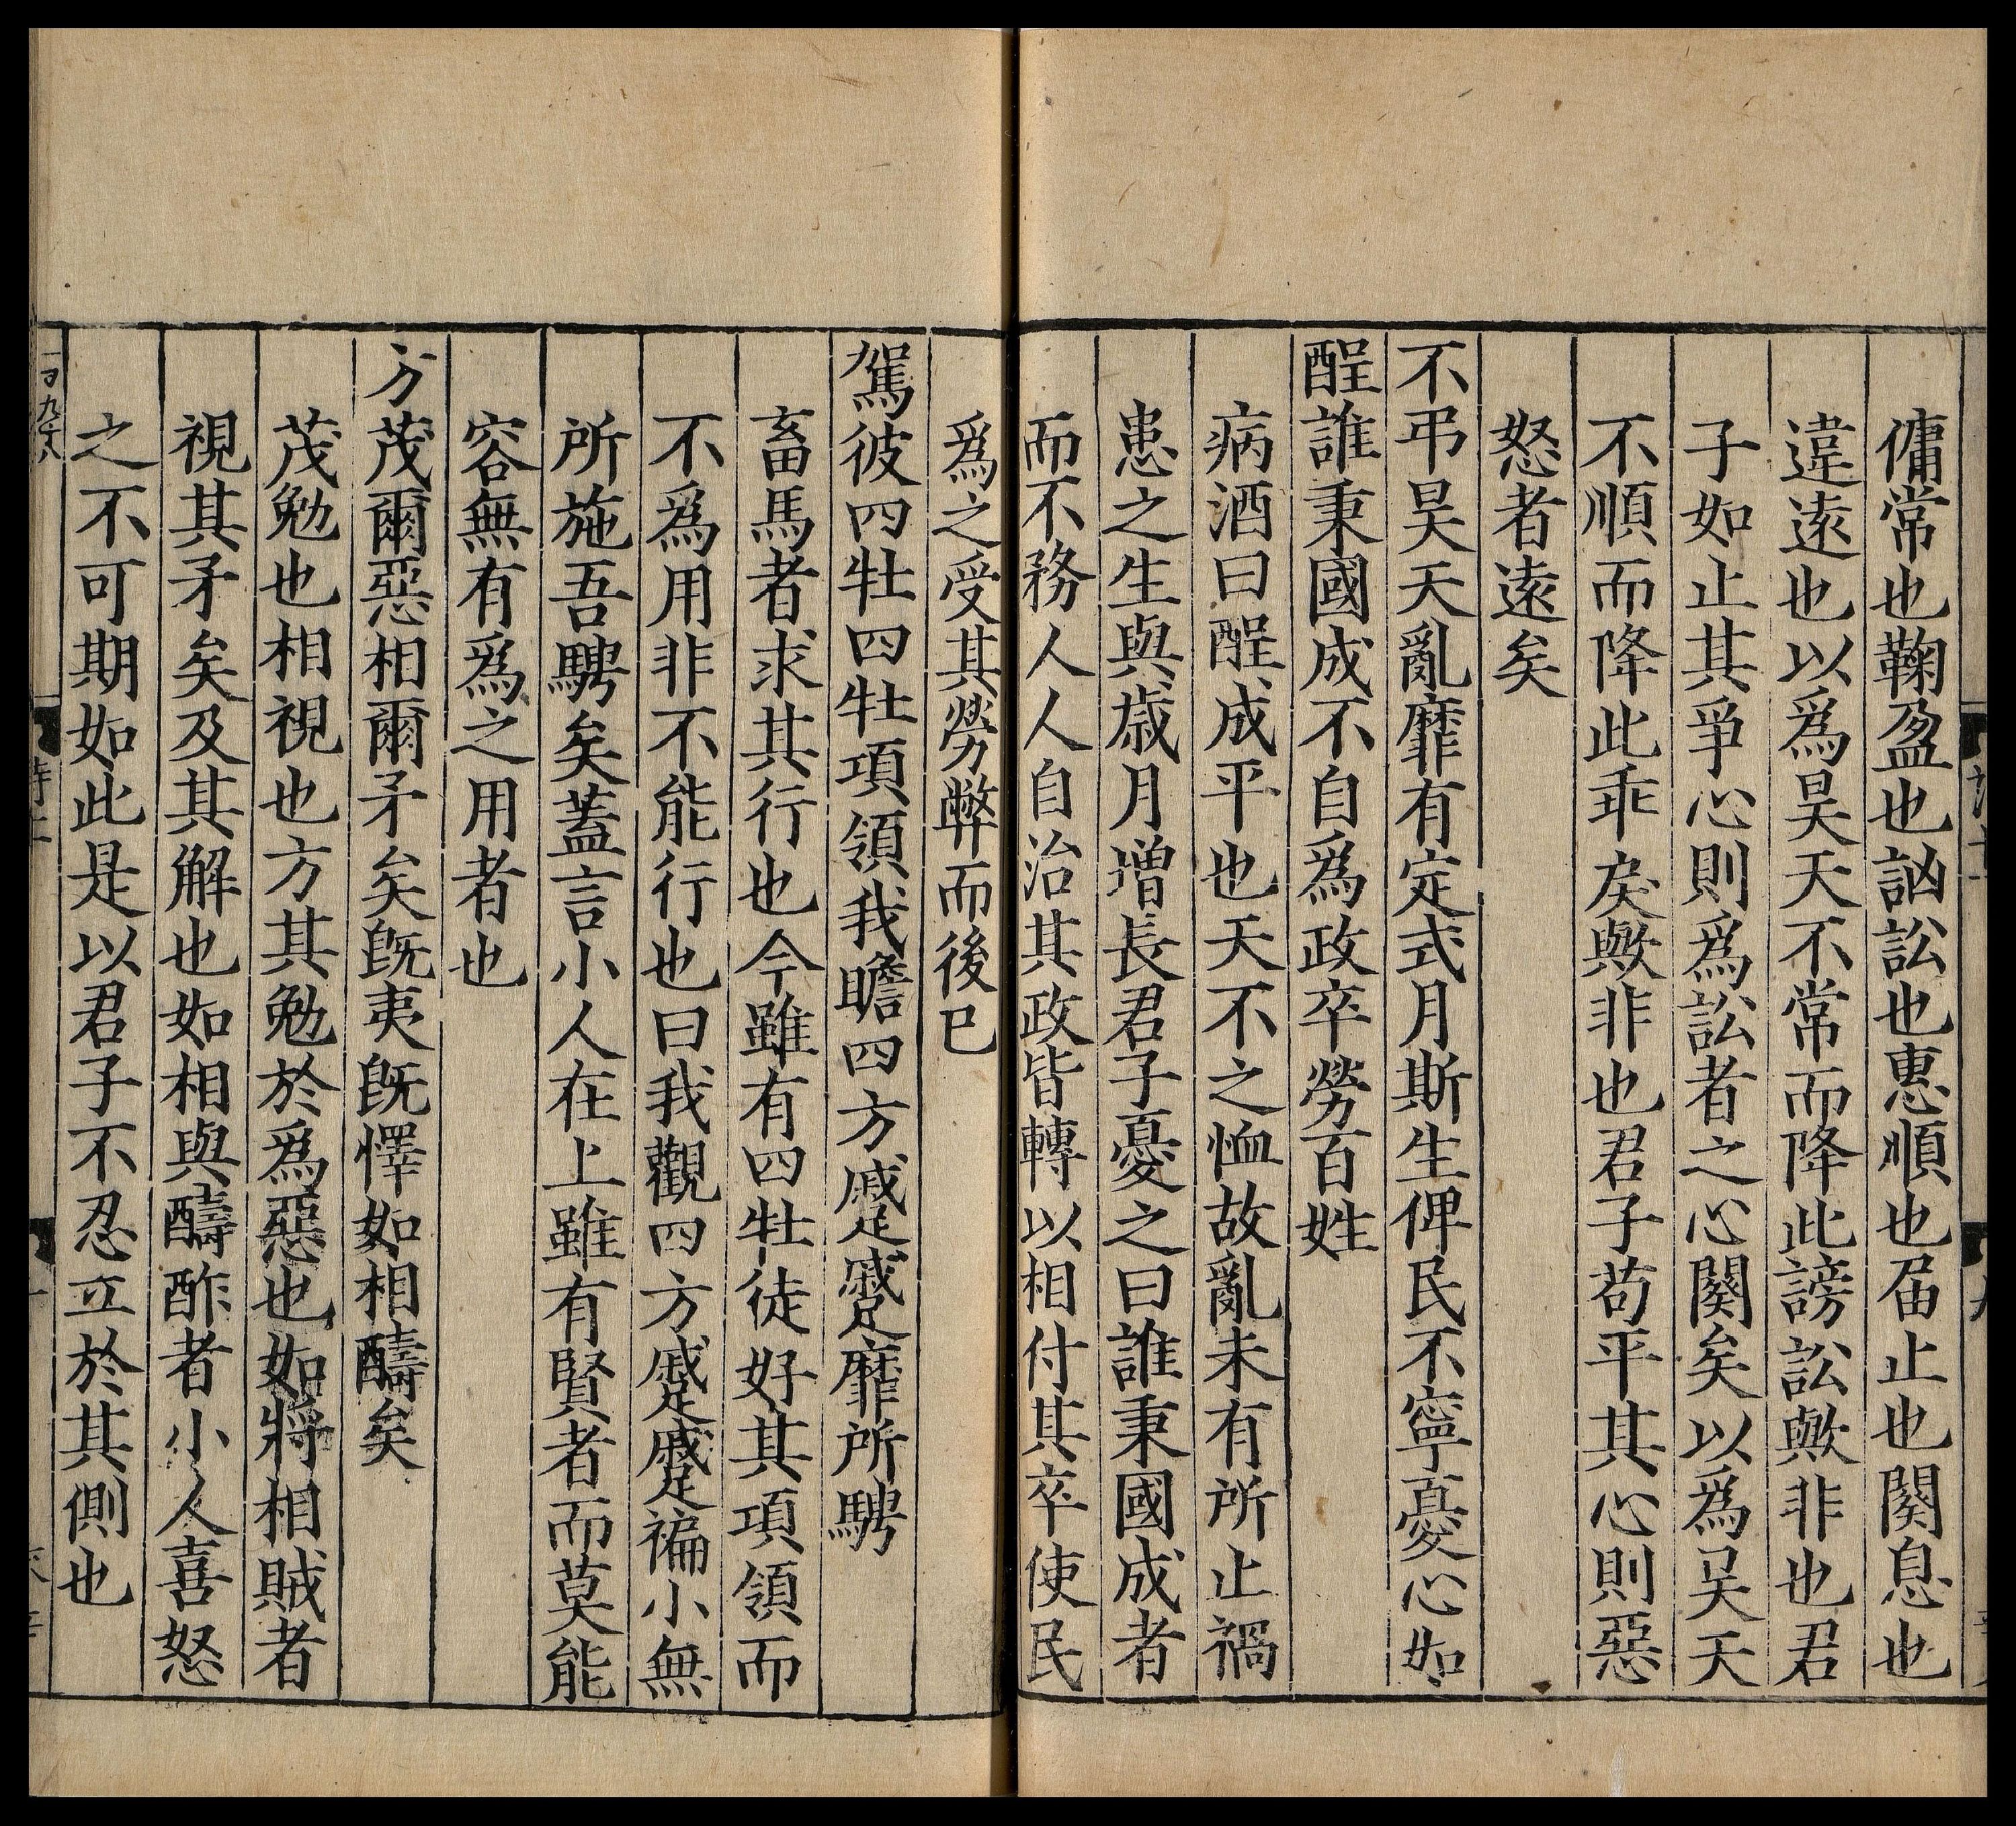 傭常也鞠盈也訩訟也惠順也届止也闋息也
違遠也以爲昊天不常而降此謗訟歟非也君
子如止其爭心則爲訟者之心闋矣以爲昊天
不順而降此乖戾歟非也君子苟平其心則惡
怒者遠矣
不弔昊天亂靡有定式月斯生俾民不寧憂心如
酲誰秉國成不自爲政卒勞百姓
病酒曰酲成平也天不之恤故亂未有所止禍
患之生與歲月增長君子憂之曰誰秉國成者
而不務人人自治其政皆轉以相付其卒使民
爲之受其勞弊而後已
駕彼四牡四牡項領我瞻四方蹙蹙靡所騁
畜馬者求其行也今雖有四牡徒好其項領而
不爲用非不能行也曰我觀四方蹙蹙褊小無
所施吾騁矣蓋言小人在上雖有賢者而莫能
容無有爲之用者也
方茂爾惡相爾矛矣旣夷旣懌如相醻矣
茂勉也相視也方其勉於爲惡也如將相賊者
視其矛矣及其解也如相與醻酢者小人喜怒
之不可期如此是以君子不忍立於其側也
一百九十八